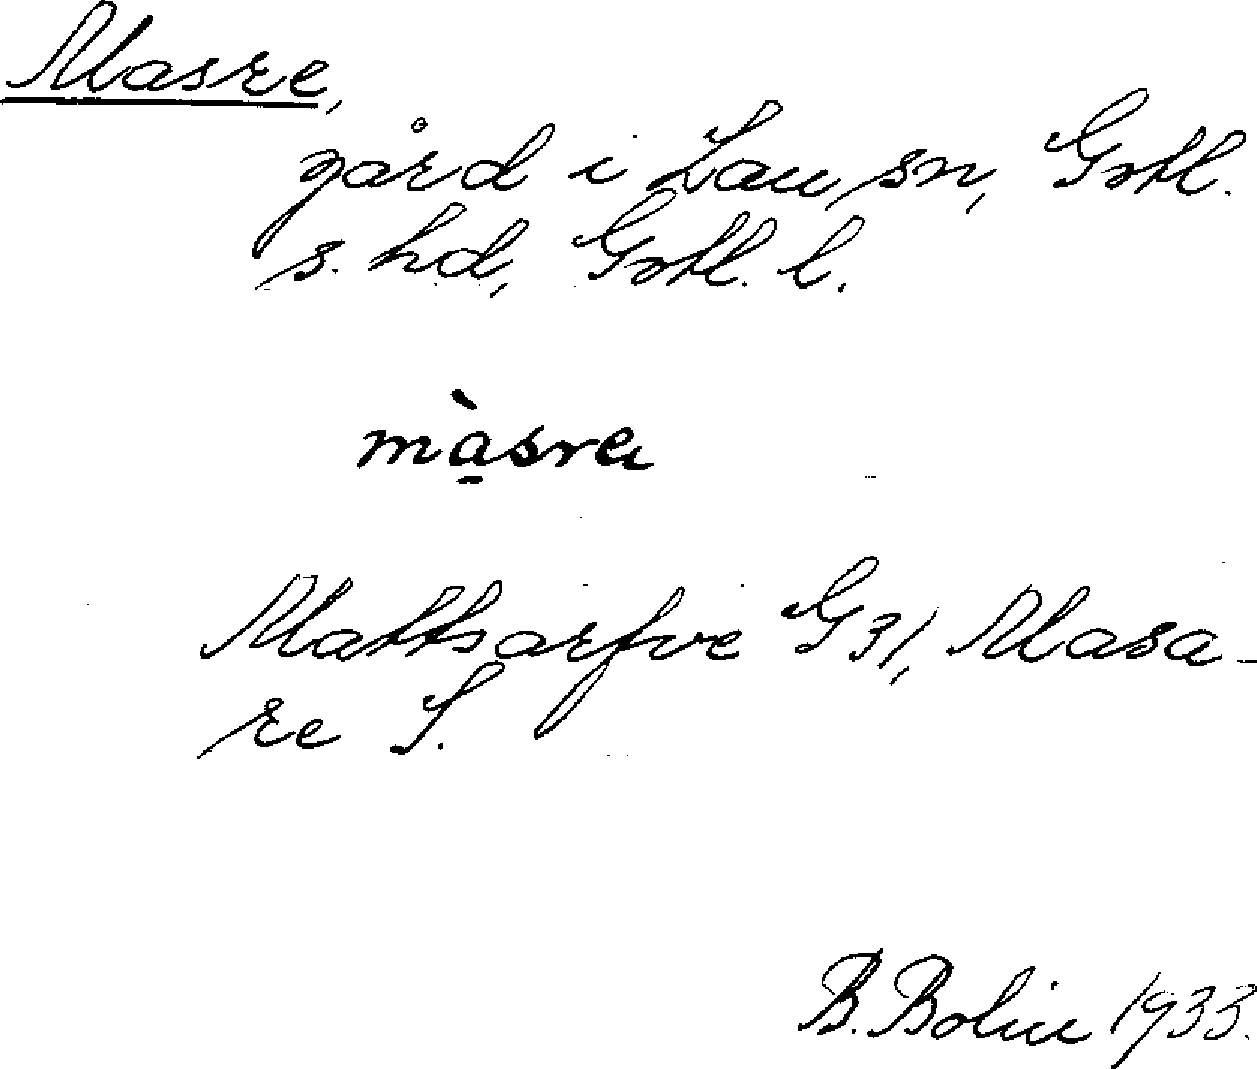 Masre,
gård i Lau sn, Gotl.
s. hd, Gotl. l.
màsre
Mattsarfve G31, Masa-
re S.
B. Bolin 1933.